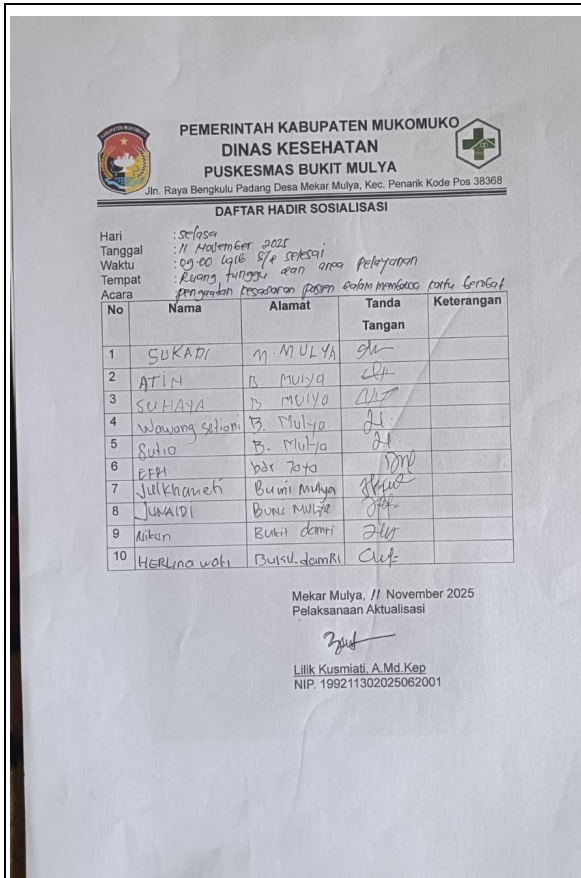 KABUPATEN MUKOMUKO
PEMERINTAH KABUPATEN MUKOMUKO
DINAS KESEHATAN
PUSKESMAS BUKIT MULYA
Jln. Raya Bengkulu Padang Desa Mekar Mulya, Kec. Penarik Kode Pos 38368
DAFTAR HADIR SOSIALISASI
Hari : Selasa
Tanggal : 11 November 2025
Waktu : 09.00 WIB s/d selesai
Tempat : Ruang tunggu dan area pelayanan
Acara penguatan kesadaran pasien dalam membawa kartu berobat
No Nama Alamat Tanda Tangan Keterangan
1 SUKADI M. MULYA
2 ATIN B Mulya
3 SUHAYA B Mulya
4 Wawang setiani B. Mulyo
5 Sutio B. Mulyo
6 EFRI
7 Julkhaneti Bumi Mulya
8 JUNAIDI Bumi Mulya
9 Nikan Bukit damri
10 HERLINA wati Bukit damRI
Mekar Mulya, 11 November 2025
Pelaksanaan Aktualisasi
Lilik Kusmiati, A.Md.Kep
NIP. 199211302025062001